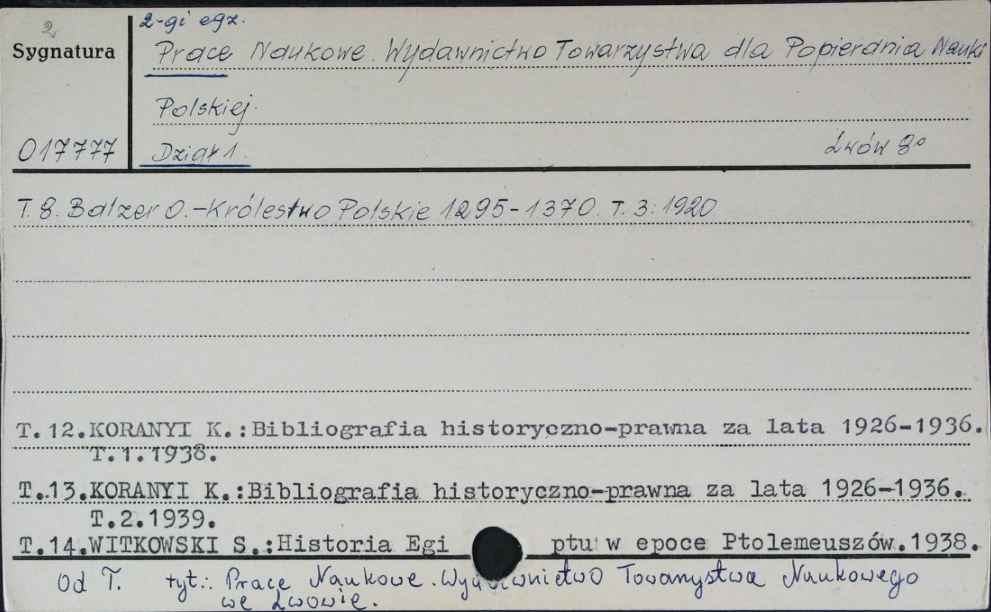 2
2-gi egz.
Sygnatura
Prace Naukowe. Wydawnictwo Towarzystwa dla Popierania Nauki
Polskiej.
017777
Dział 1.
Lwów 8º
T. 8. Balzer O. - Królestwo Polskie 1295-1370. T. 3. 1920
T.12.KORANYI K.:Bibliografia historyczno-prawna za lata 1926-1936.
T.1.1938.
T.13.KORANYI K.:Bibliografia historyczno-prawna za lata 1926-1936.
T.2.1939.
T.14.WITKOWSKI S.:Historia Egi ptu w epoce Ptolemeuszów.1938.
Od T. tyt.: Prace Naukowe. Wydawnictwo Towarzystwa Naukowego
we Lwowie.